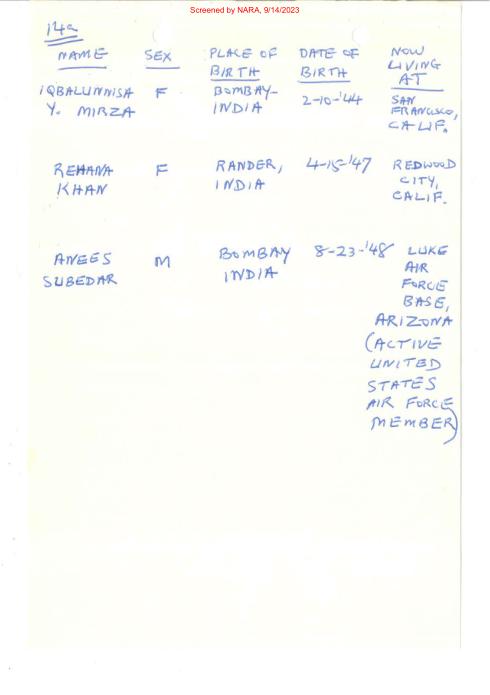 Screened by NARA, 9/14/2023
14a
NAME SEX PLACE OF BIRTH DATE OF BIRTH NOW LIVING AT
IQBALUNNISA Y. MIRZA F BOMBAY- INDIA 2-10-'44 SAN FRANCISCO, CALIF.
REHANA KHAN F RANDER, INDIA 4-15-'47 REDWOOD CITY, CALIF.
ANEES SUBEDAR M BOMBAY INDIA 8-23-'48 LUKE AIR FORCE BASE, ARIZONA (ACTIVE UNITED STATES AIR FORCE MEMBER)